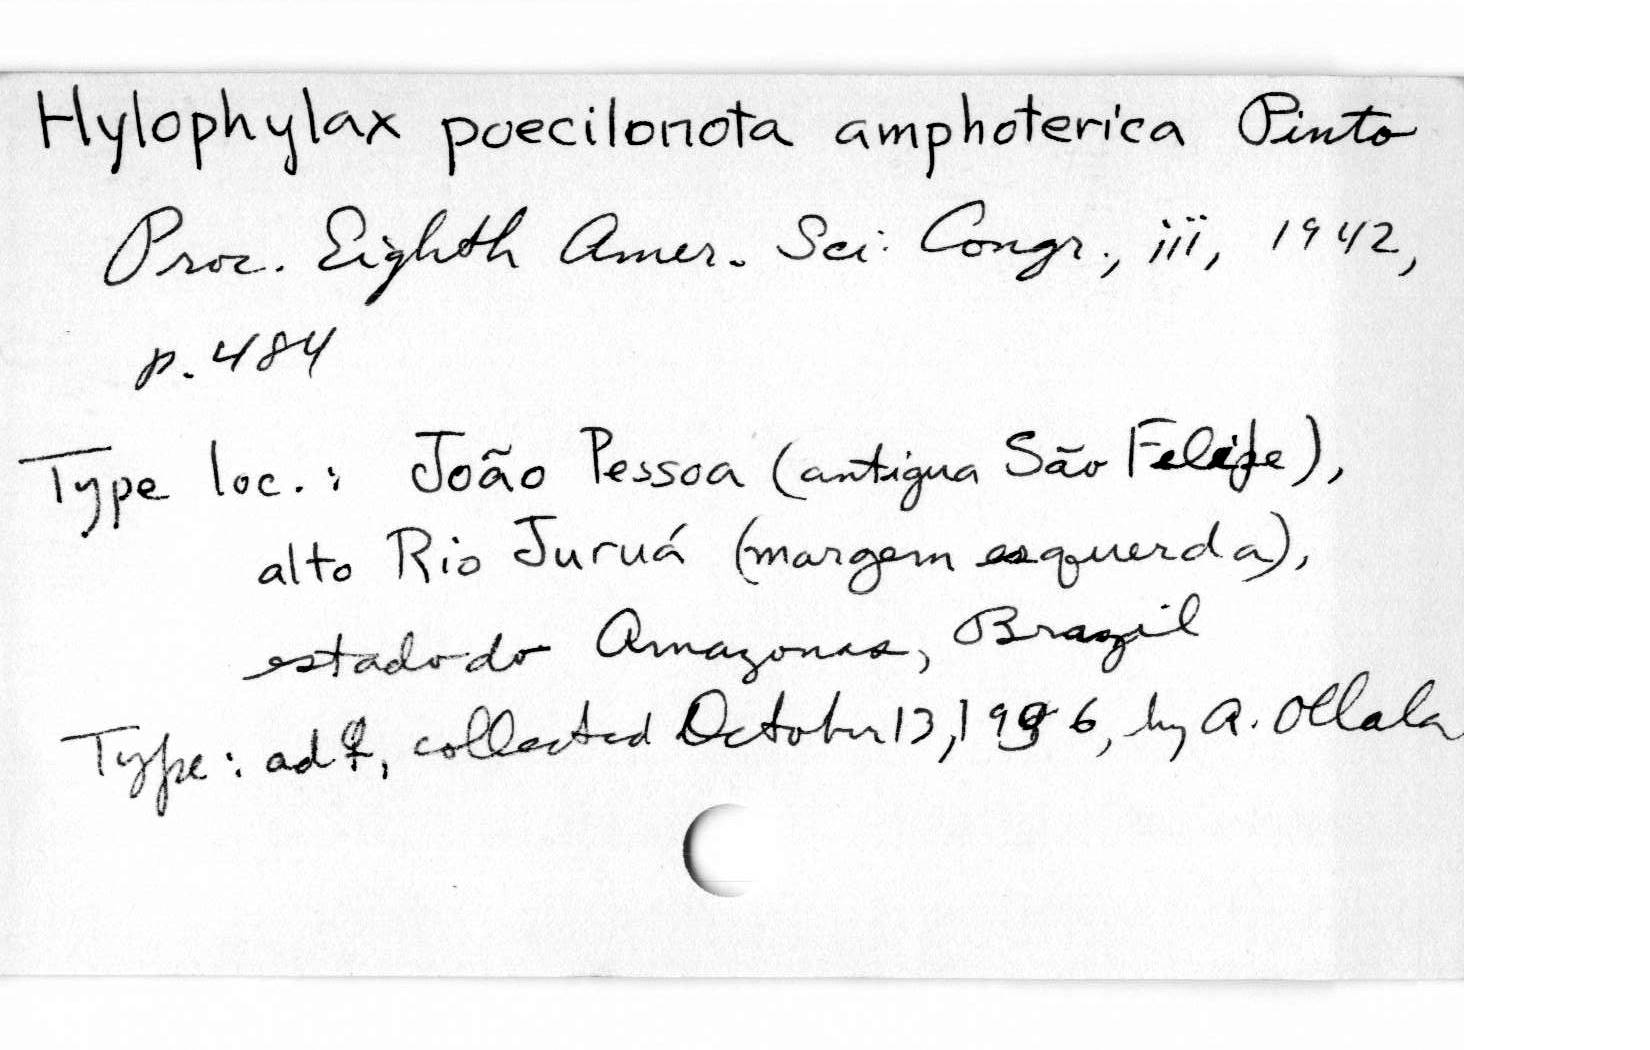 Hylophylax poecilonota amphoterica Pinto
Proc. Eighth Amer. Sci. Congr., iii, 1942,
p. 484
Type loc.: João Pessoa (antigua São Felipe),
alto Rio Juruá (margem esquerda),
estado do Amazonas, Brazil
Type: ad ♀, collected October 13, 1936, by A. Ollala